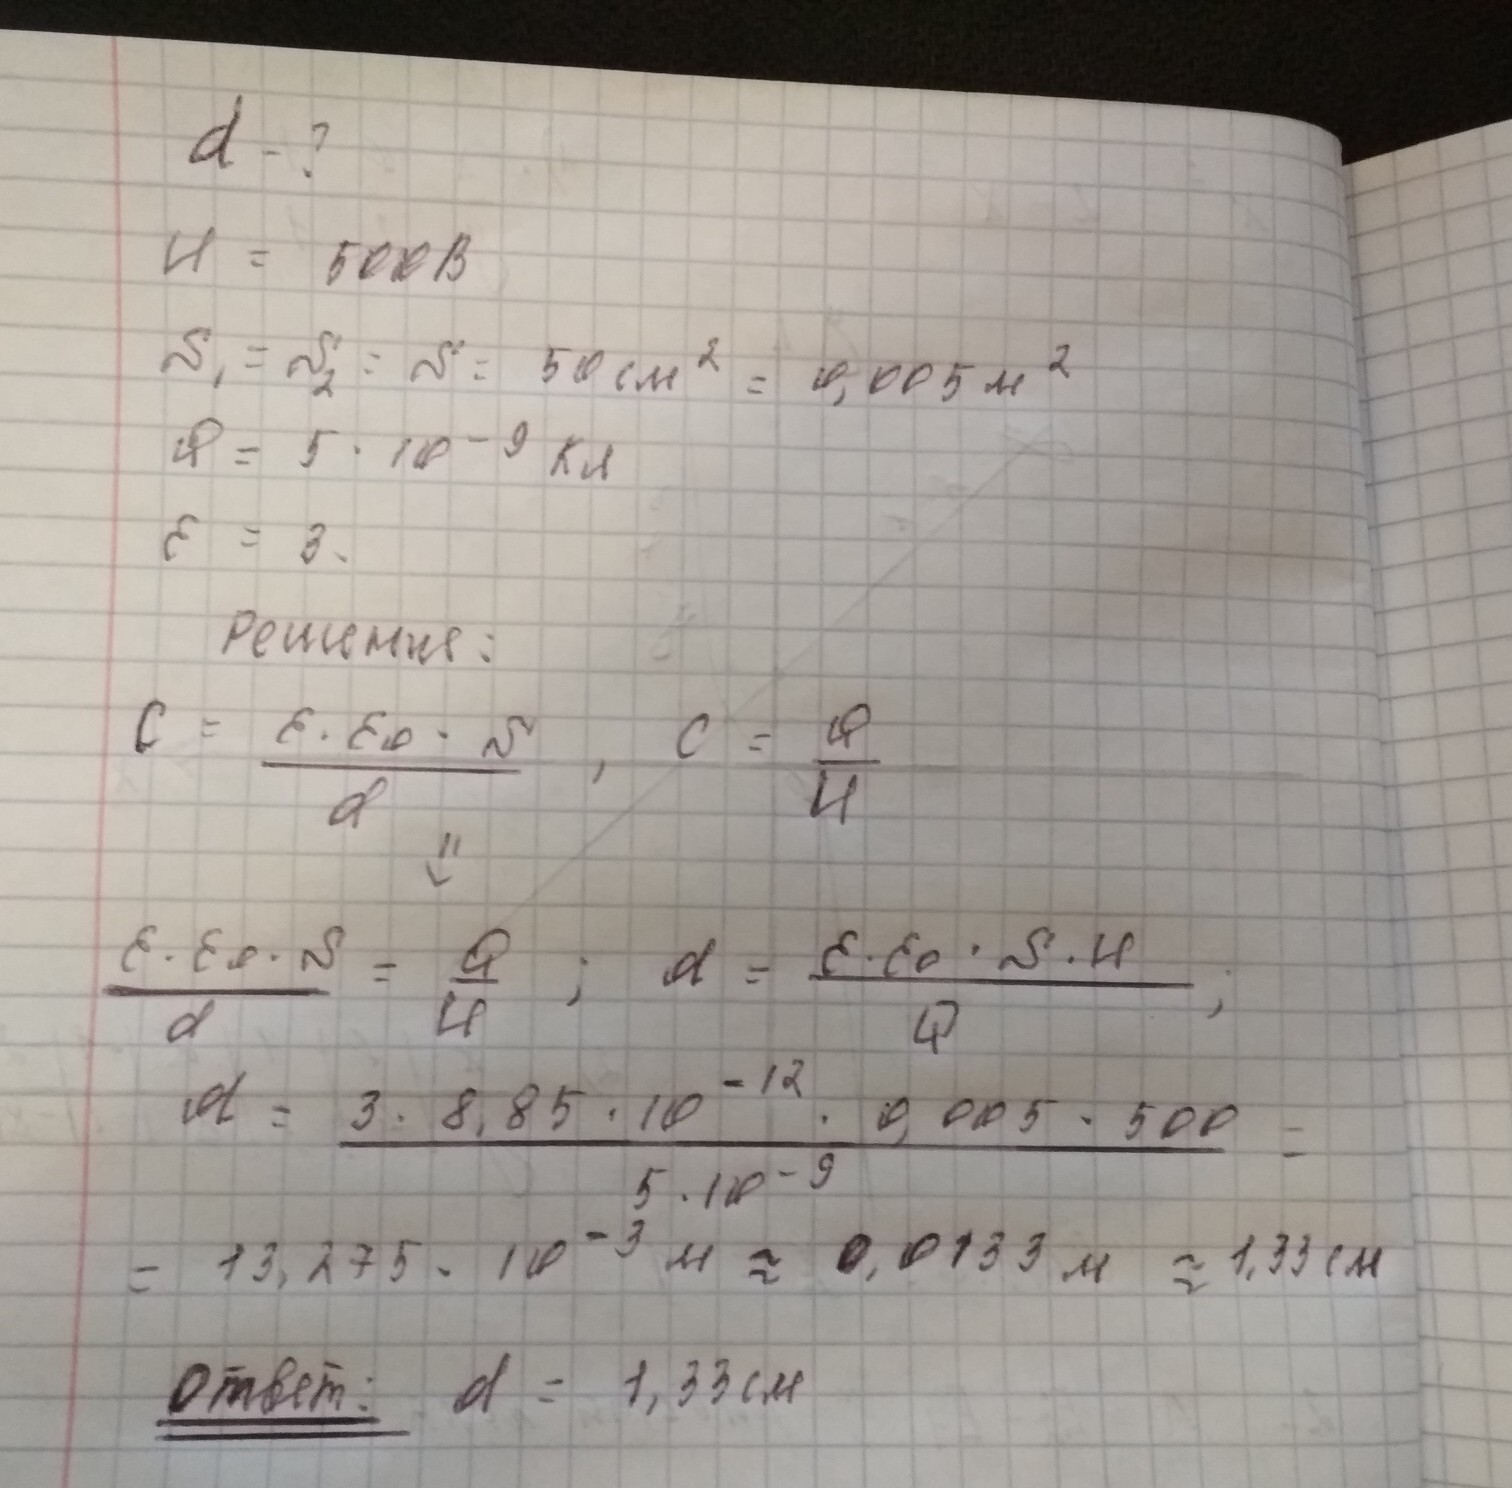 d - ?
U = 500В
S₁ = S₂ = S = 50 см² = 0,005 м²
Q = 5 · 10⁻⁹ Кл
ε = 3.
Решение:
C = ε · ε₀ · S / d , C = Q / U
⇓
ε · ε₀ · S / d = Q / U ; d = ε · ε₀ · S · U / Q ;
d = 3 · 8,85 · 10⁻¹² · 0,005 · 500 / 5 · 10⁻⁹ =
= 13,275 · 10⁻³ м ≈ 0,0133 м ≈ 1,33 см
Ответ: d = 1,33 см